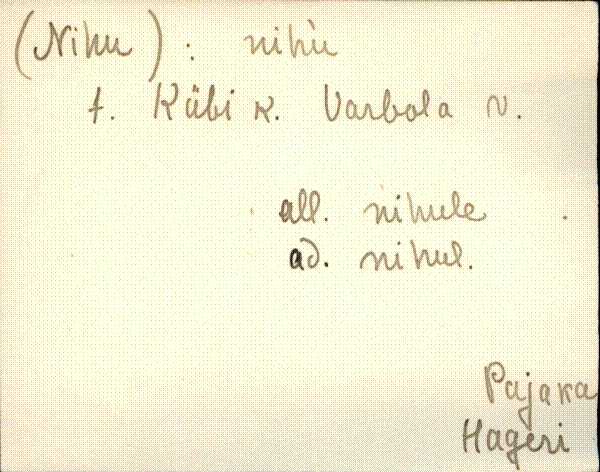 (Nihu) : nihù
t. Käbi k. Varbola v.
all. nihule
ad. nihul.
Pajaka
Hageri